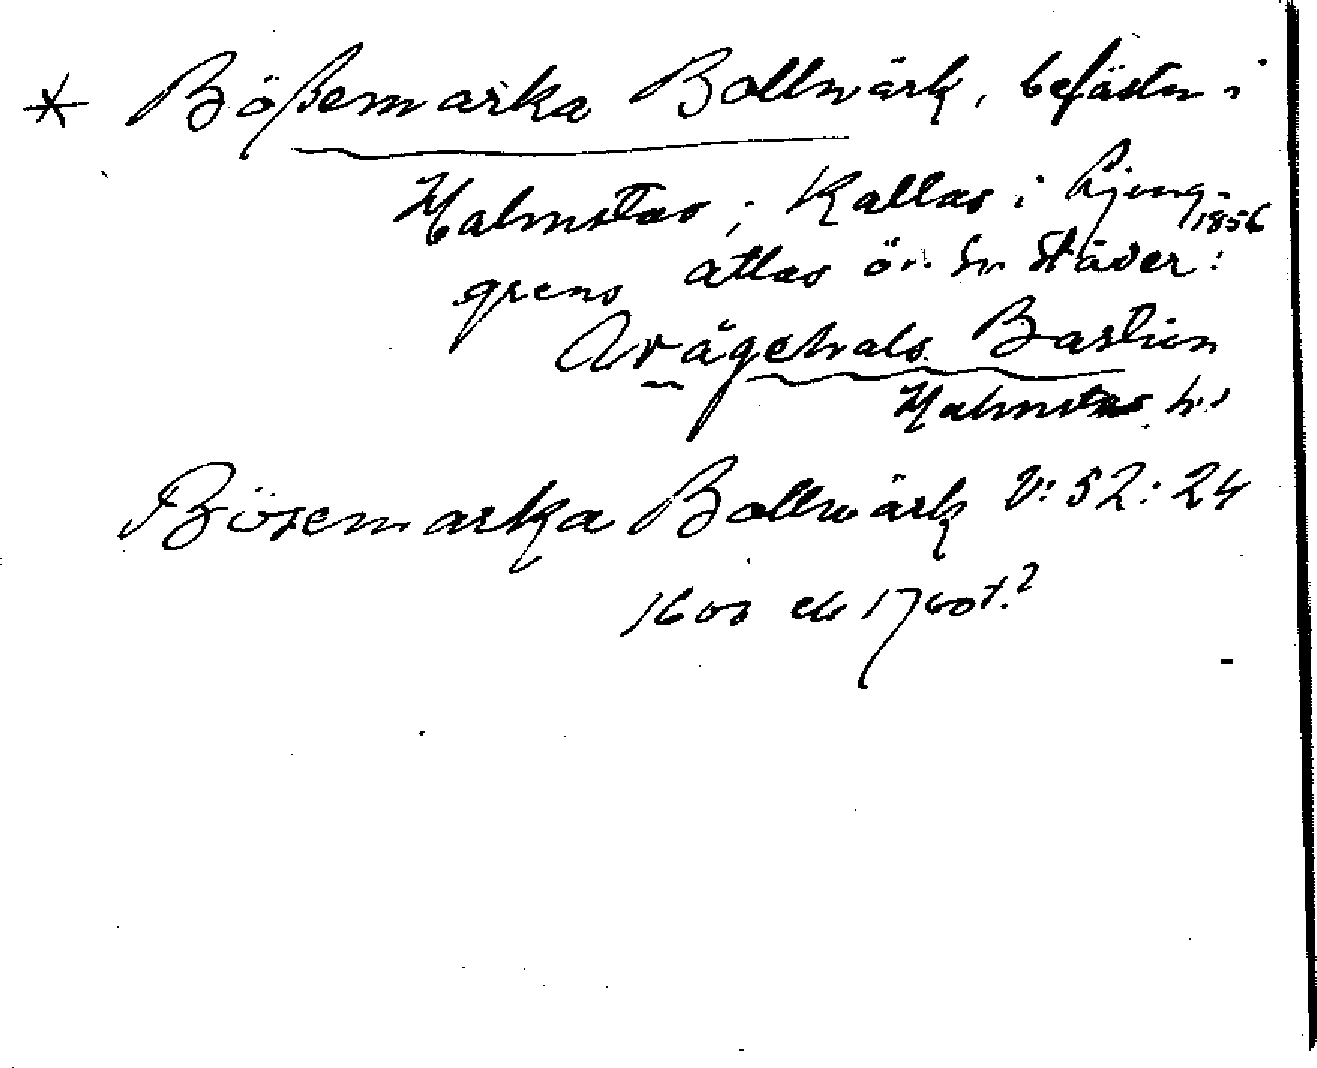 * Bößemarka Bollwärk, befästn i
Halmstad; kallas i Ljung-
1856
grens atlas öv. Sv. Städer:
Wrågehals Bastion
Halmstad h:d
Bösemarka Bollwärk V: 52: 24
1600 el. 1700t.?